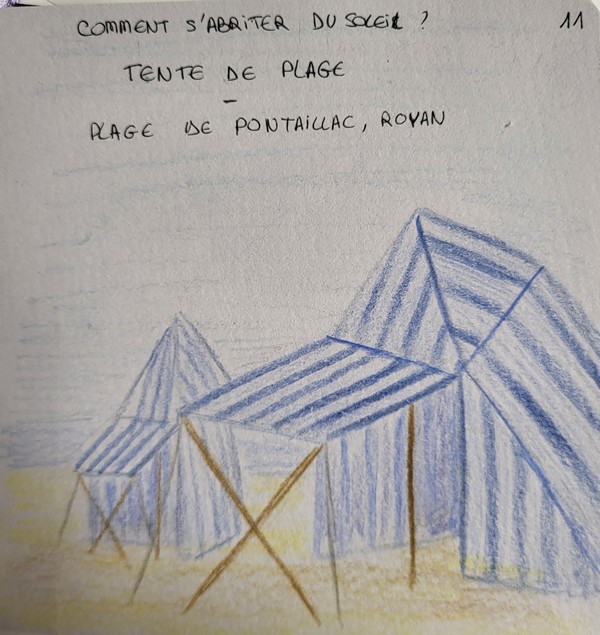 COMMENT S'ABRITER DU SOLEIL ?
11
TENTE DE PLAGE
-
PLAGE DE PONTAILLAC, ROYAN